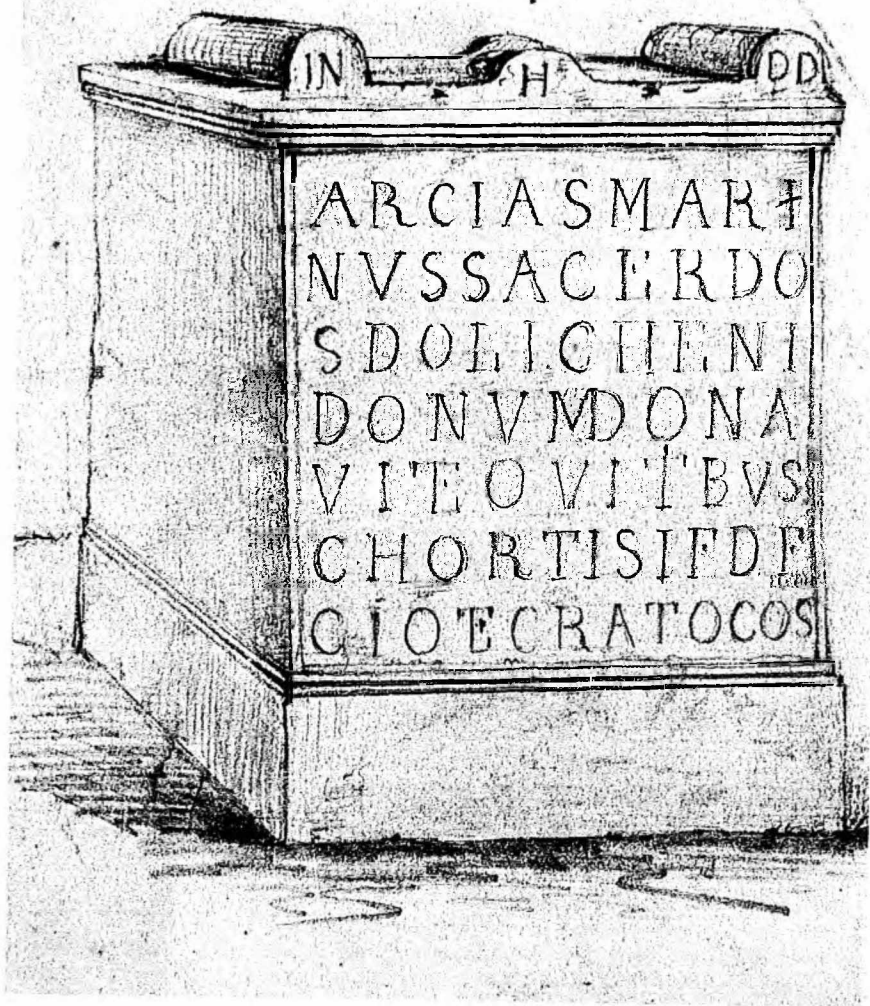 IN H DD
ARCIASMARI
NVSSACERDO
SDOLICHENI
DONVMDONA
VITEOVITIBVS
CHORTISIFDF
GIOETCRATOCOS